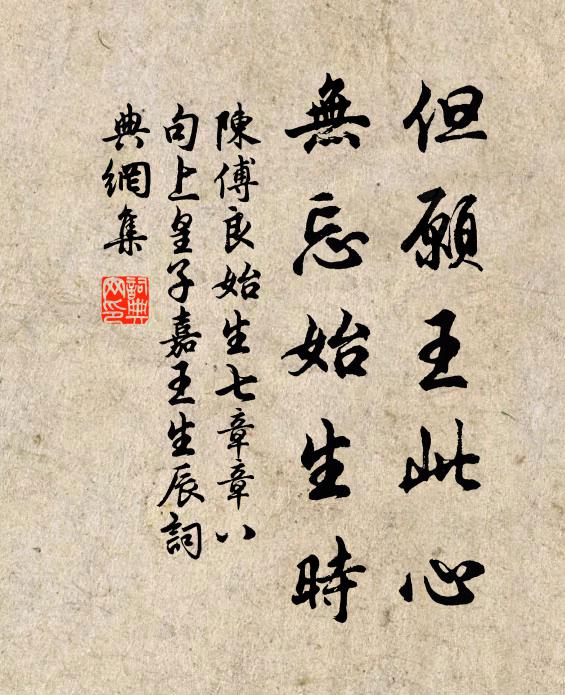 但願王此心
無忘始生時
陳傅良始生七章章八
句上皇子嘉王生辰詞
典網集
詞典
网印